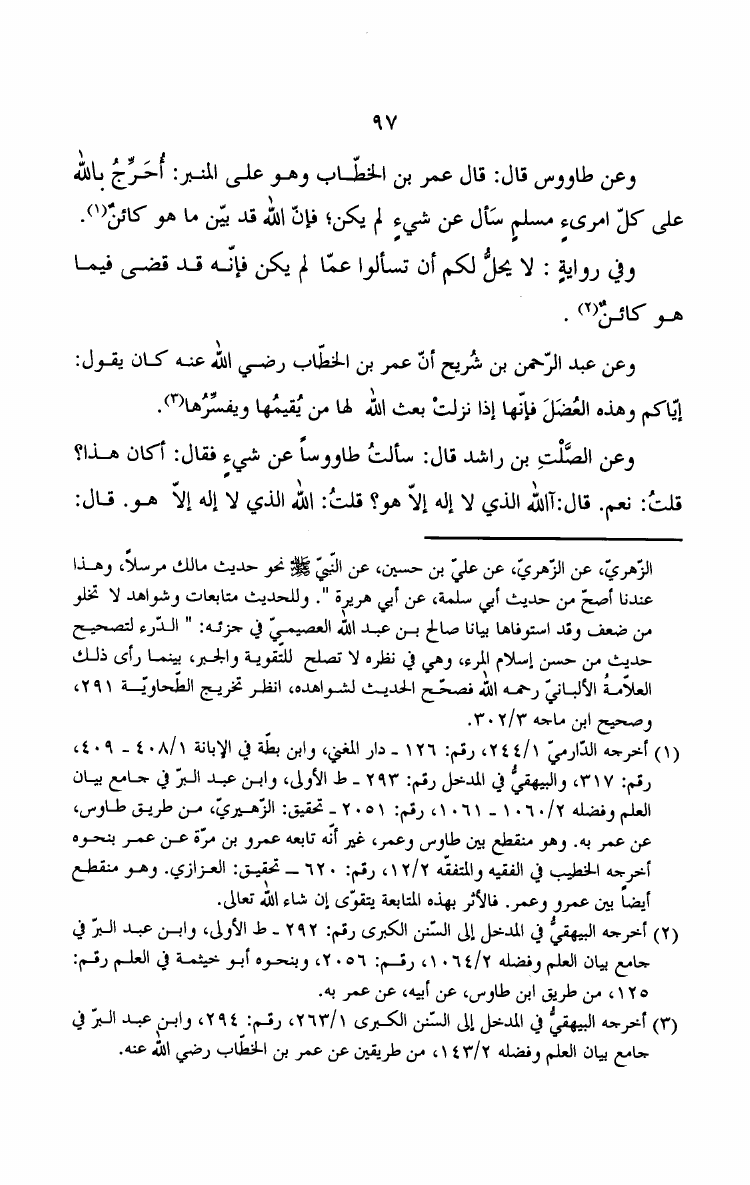 ٩٧
وعن طاووس قال: قال عمر بن الخطّـاب وهـو علـى المنـبر: أُحَـرِّجُ بـالله
على كلّ امرىءٍ مسلمٍ سَأل عن شيءٍ لم يكن؛ فإنّ الله قد بيّن ما هو كائنٌ(١).
وفي روايةٍ : لا يحلُّ لكم أن تسألوا عمّا لم يكن فإنّـه قـد قضـى فيمـا
هـو كائـنٌ(٢) .
وعن عبد الرّحمن بن شُريح أنّ عمر بن الخطّاب رضـي الله عنـه كـان يقـول:
إيّاكم وهذه العُضَلَ فإنّها إذا نزلتْ بعث الله لها من يُقيمُها ويفسِّرُها(٣).
وعن الصَّلْتِ بن راشد قال: سألتُ طاووساً عن شيءٍ فقال: أكان هـذا؟
قلتُ: نعم. قال:آالله الذي لا إله إلاّ هو؟ قلتُ: الله الذي لا إله إلاّ هـو. قـال:
الزّهريّ، عن الزّهريّ، عن عليّ بن حسين، عن النّبيّ ﷺ نحو حديث مالك مرسلاً، وهـذا
عندنا أصحّ من حديث أبي سلمة، عن أبي هريرة ". وللحديث متابعات وشواهد لا تخلو
من ضعف وقد استوفاها بيانا صالح بـن عبـد الله العصيمـيّ في جزئـه: " الـدّرء لتصحيح
حديث من حسن إسلام المرء، وهي في نظره لا تصلح للتّقوية والجبر، بينمـا رأى ذلـك
العلاّمـةُ الألبـانيّ رحمـه الله فصحّـح الحديـث لشـواهده، انظـر تخريـج الطّحاويّـة ٢٩١،
وصحيح ابن ماجه ٣٠٢/٣.
(١) أخرجه الدّارميّ ٢٤٤/١، رقم: ١٢٦ ـ دار المغني، وابن بطّة في الإبانة ٤٠٨/١ ـ ٤٠٩،
رقم: ٣١٧، والبيهقيُّ في المدخل رقم: ٢٩٣ ـ ط الأولى، وابـن عبـد الـبرّ في جـامع بيـان
العلم وفضله ١٠٦٠/٢ ـ ١٠٦١، رقم: ٢٠٥١ ـ تحقيق: الزّهـيريّ، مـن طريـق طـاوس،
عن عمر به. وهو منقطع بين طاوس وعمر، غير أنّه تابعه عمرو بن مرّة عـن عمـر بنحـوه
أخرجه الخطيب في الفقيه والمتفقّه ١٢/٢، رقم: ٦٢٠ ـ تحقيق: العـزازي. وهـو منقطـع
أيضاً بين عمرو وعمر. فالأثر بهذه المتابعة يتقوّى إن شاء الله تعالى.
(٢) أخرجه البيهقيُّ في المدخل إلى السّنن الكبرى رقم: ٢٩٢ ـ ط الأولى، وابـن عبـد الـبرّ في
جامع بيان العلم وفضله ١٠٦٤/٢، رقـم: ٢٠٥٦، وبنحـوه أبـو خيثمـة في العلـم رقـم:
١٢٥، من طريق ابن طاوس، عن أبيه، عن عمر به.
(٣) أخرجه البيهقيُّ في المدخل إلى السّنن الكـبرى ٢٦٣/١، رقـم: ٢٩٤، وابـن عبـد الـبرّ في
جامع بيان العلم وفضله ١٤٣/٢، من طريقين عن عمر بن الخطّاب رضي الله عنه.